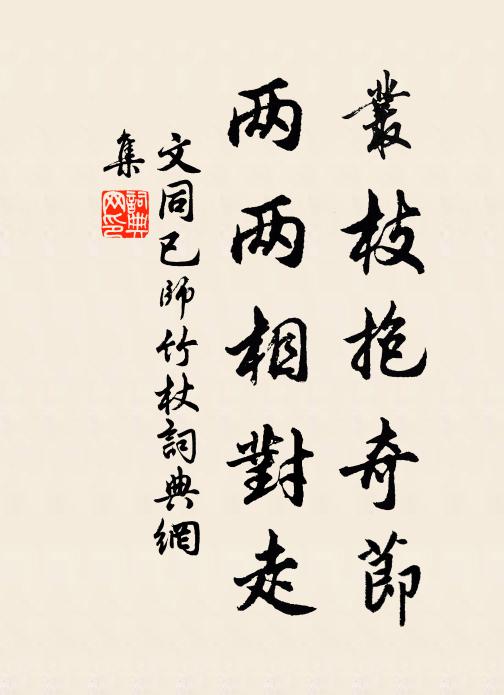 叢枝抱奇節
两两相對走
文同已師竹杖詞典網
集
詞典网印